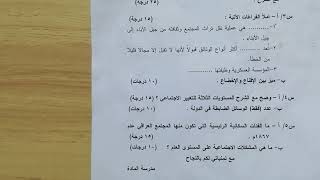 س٣/ أ – املأ الفراغات الآتية : (١٥ درجة)
١-............ هي عملية نقل تراث المجتمع وثقافته من جيل الآباء إلى
جيل الأبناء .
٢-تُعد ........ أكثر أنواع الوثائق قبولاً لأنها لا تقبل إلا مجالاً قليلاً
من الخطأ.
٣-المؤسسة العسكرية وظيفتها .........
ب- ميز بين الإقناع والإخضاع . (١٠ درجات)
س٤/ أ – وضح مع الشرح المستويات الثلاثة للتغيير الاجتماعي ؟ (١٥ درجة)
ب- عدد (فقط) الوسائل الضابطة في الدولة . (١٠ درجات)
س٥/ أ – ما الفئات السكانية الرئيسية التي تكون منها المجتمع العراقي عام
١٨٦٧م. (١٠ درجات)
ب – ما هي المشكلات الاجتماعية على المستوى العام ؟ (١٠ درجات)
مع تمنياتي لكم بالنجاح
مدرسة المادة